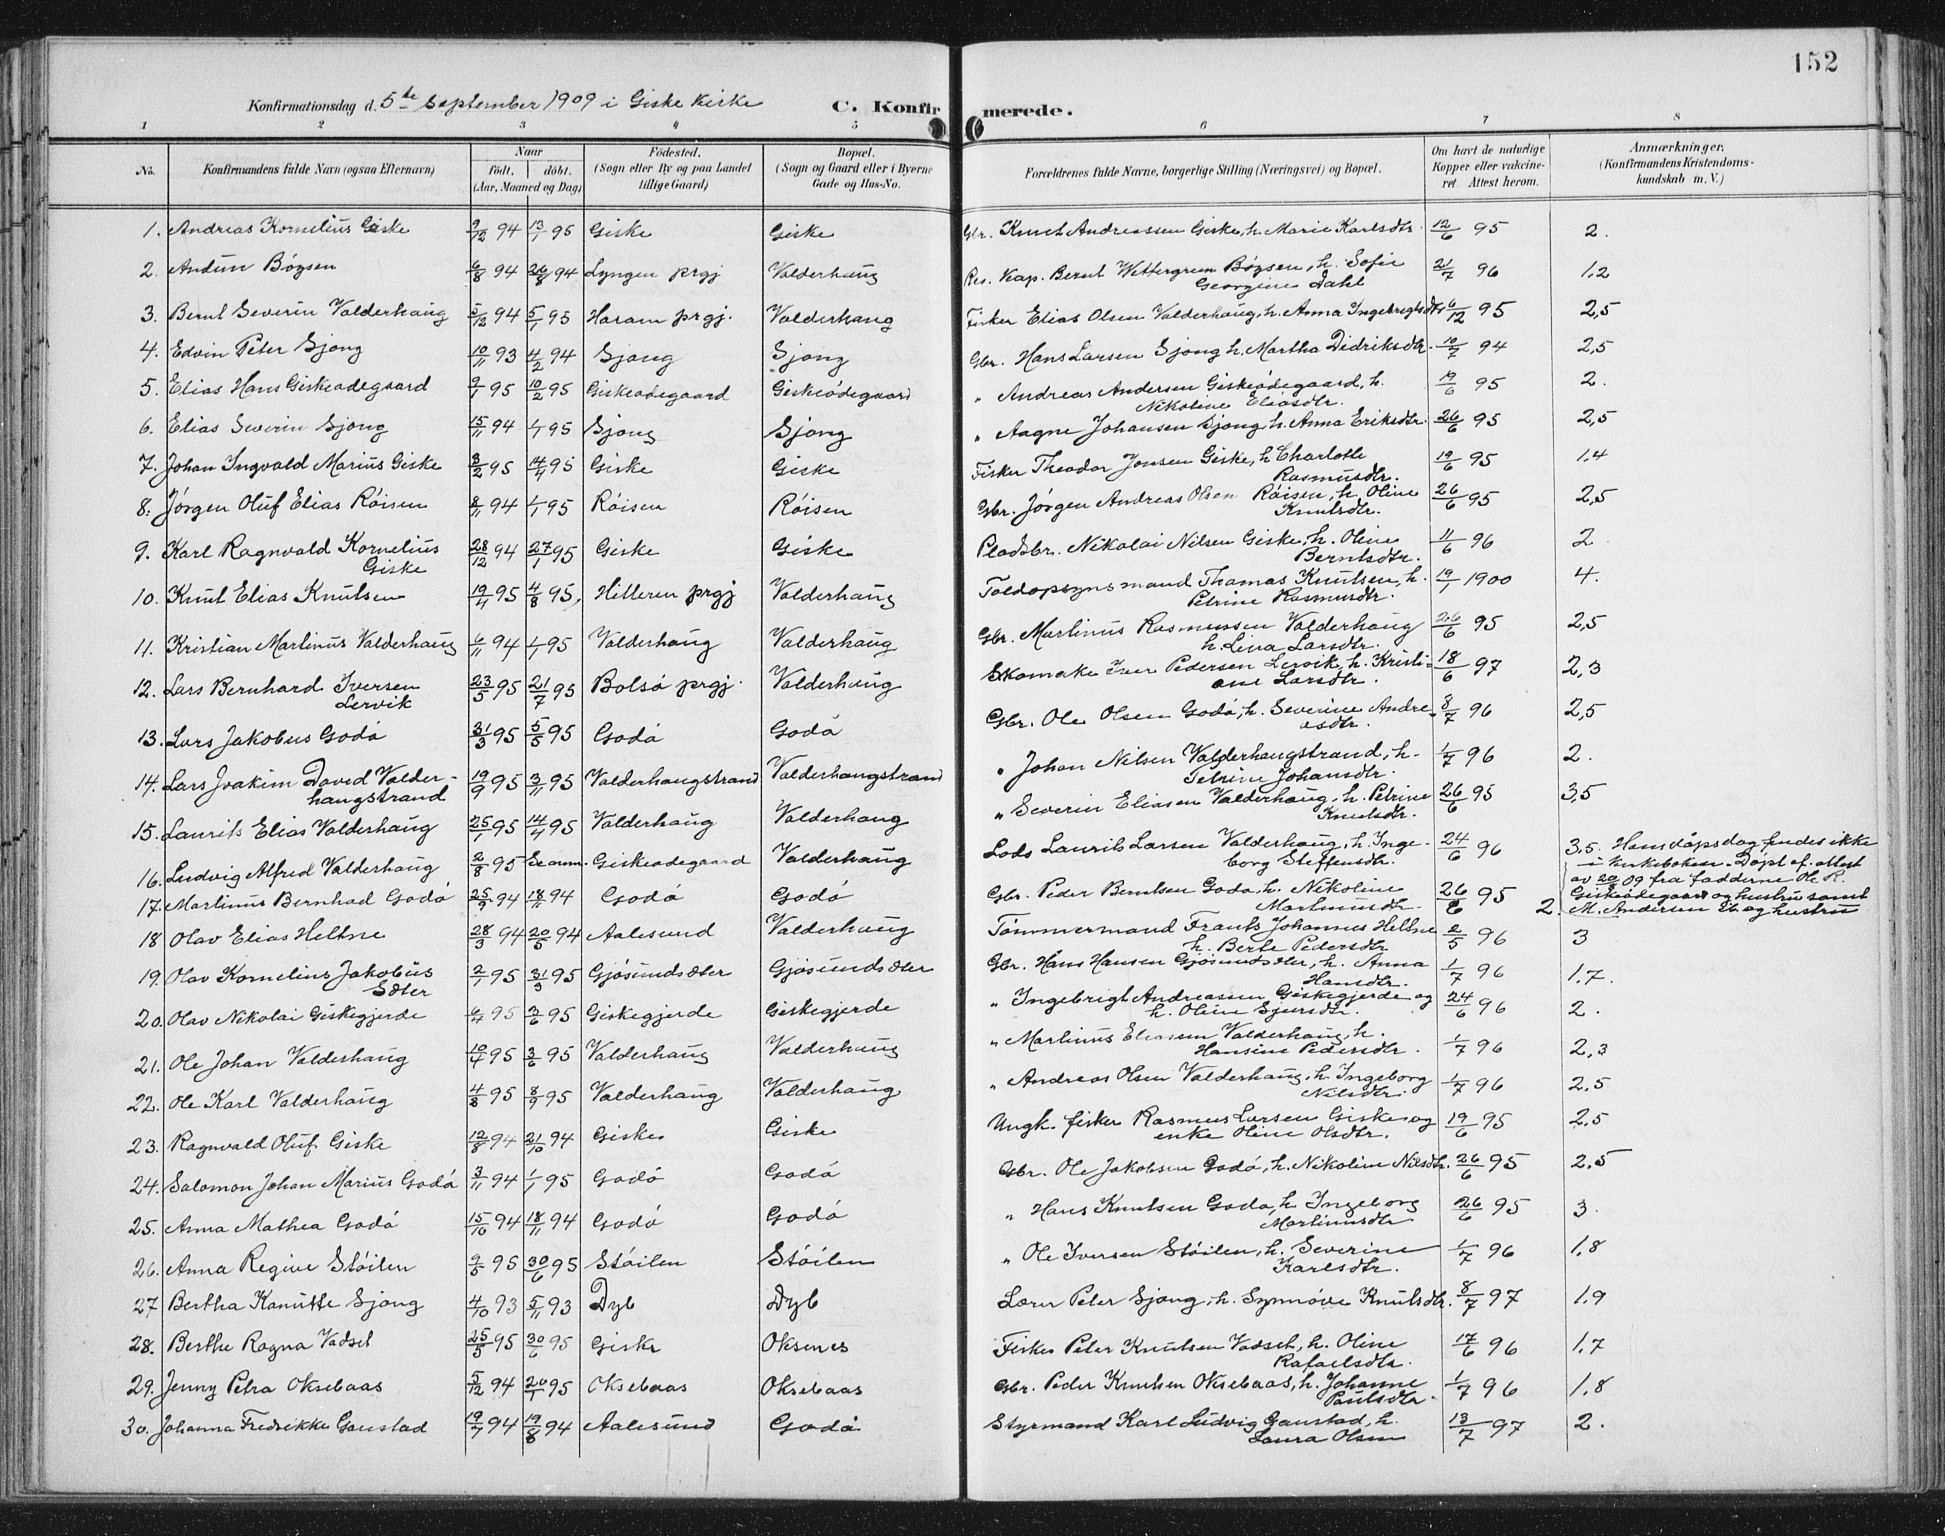 152
Konfirmationsdag d. 5te September 1909 i Giske kirke C. Konfirmerede.
1 2 3 4 5 6 7 8
No. Konfirmandens fulde Navn (ogsaa Efternavn) Naar født. døbt. (Aar, Maaned og Dag) Fødested. (Sogn eller By og paa Landet tillige Gaard) Bopæl. (Sogn og Gaard eller i Byerne Gade og Hus-No. Forældrenes fulde Navne, borgerlige Stilling (Næringsvei) og Bopæl. Om havt de naturlige Kopper eller vakcineret. Attest herom. Anmærkninger. (Konfirmandens Kristendomskundskab m. V.)
1. Andreas Kornelius Giske 9/12 94 13/1 95 Giske Giske Gbr. Knut Andreassen Giske, h. Marie Karlsdtr. 12/6 95 2.
2. Audun Bøgsen 6/8 94 26/8 94 Lyngen prgj Valderhaug Res. Kap. Bernt Wettergreen Bøgsen, h. Sofie 21/7 96 1,2
Georgine Dahl
3. Bernt Severin Valderhaug 5/12 94 5/1 95 Haram prgj. Valderhaug Fisker Elias Olsen Valderhaug, h. Anna Ingebrigtsdtr 6/12 95 2,5
4. Edvin Peter Sjong 10/11 93 4/2 94 Sjong Sjong Gbr. Hans Larsen Sjong h. Martha Didriksdtr. 10/7 94 2,5
5. Elias Hans Giskeødegaard 9/1 95 10/2 95 Giskeødegaard Giskeødegaard " Andreas Andersen Giskeødegaard, h. 19/6 95 2.
Nikoline Eliasdtr.
6. Elias Severin Sjong 15/11 94 1/1 95 Sjong Sjong " Aagne Johansen Sjong, h. Anna Eriksdtr. 26/6 95 2,5
7. Johan Ingvald Marius Giske 3/2 95 14/4 95 Giske Giske Fisker Theodor Jonsen Giske, h Charlotte 19/6 95 1.4
Rasmusdtr.
8. Jørgen Oluf Elias Røisen 8/11 94 1/1 95 Røisen Røisen Gbr. Jørgen Andreas Olsen Røisen, h. Oline 26/6 95 2,5
Knutsdtr.
9. Karl Ragnvald Kornelius 28/12 94 27/1 95 Giske Giske Pladsbr. Nikolai Nilsen Giske, h. Oline 11/6 96 2
Giske Berntsdtr.
10. Knut Elias Knutsen 19/4 95 4/8 95, Hitteren prgj Valderhaug Toldopsynsmand Thomas Knutsen, h. 19/1 1900 4.
Petrine Rasmusdtr.
11. Kristian Martinus Valderhaug 6/11 94 1/1 95 Valderhaug Valderhaug Gbr. Martinus Rasmussen Valderhaug 26/6 95 2,5
h. Lina Larsdtr.
12. Lars Bernhard Iversen 23/5 95 21/7 95 Bolsø prgj. Valderhaug Skomake Iver Pedersen Lervik, h. Kristi- 18/6 97 2,3
Lervik ane Larsdtr.
13. Lars Jakobus Godø 31/3 95 5/5 95 Godø Godø Gbr. Ole Olsen Godø, h. Severine Andre- 8/7 96 2,5
asdtr.
14. Lars Joakim David Valder- 19/9 95 3/11 95 Valderhaugstrand Valderhaugstrand " Johan Nilsen Valderhaugstrand, h. 1/7 96 2.
haugstrand Petrine Johansdtr.
15. Laurits Elias Valderhaug 25/1 95 14/4 95 Valderhaug Valderhaug " Severin Eliasen Valderhaug, h. Petrine 26/6 95 3,5
Knutsdtr.
16. Ludvig Alfred Valderhaug 2/8 95 Se anm. Giskeødegaard Valderhaug Lods Laurits Larsen Valderhaug, h. Inge- 24/6 96 3,5. Hans dåpsdag findes ikke
borg Steffensdtr. i kirkeboken. Døpt ef. attest
av 20/8 09 fra fadderne Ole R.
Giskeødegaard og hustru samt
M. Andersen og hustru
17. Martinus Bernhad Godø 25/9 94 18/11 94 Godø Godø Gbr. Peder Berntsen Godø, h. Nikoline 26/6 95 2.
Martinusdtr.
18 Olav Elias Heltne 28/3 94 20/5 94 Aalesund Valderhaug Tømmermand Frants Johannes Heltne 2/5 96 3
h. Berte Pedersdtr
19. Olav Kornelius Jakobus 2/1 95 31/3 95 Gjøsundsæter Gjøsundsæter Gbr. Hans Hansen Gjøsundsæter, h. Anna 1/7 96 1.7.
Sæter Hansdtr.
20. Olav Nikolai Giskegjerde 6/4 95 3/6 95 Giskegjerde Giskegjerde " Ingebrigt Andreassen Giskegjerde og 24/6 96 2.
h. Oline Sjursdtr.
21. Ole Johan Valderhaug 10/4 95 3/6 95 Valderhaug Valderhaug " Martinus Eliasen Valderhaug, h. 1/7 96 2,3
Hansine Pedersdtr.
22. Ole Karl Valderhaug 4/8 95 8/9 95 Valderhaug Valderhaug " Andreas Olsen Valderhaug, h. Ingeborg 1/7 96 2.5
Nilsdtr.
23. Ragnvald Oluf Giske 12/8 94 21/10 94 Giske Giske Ungk. fisker Rasmus Larsen Giske og 19/6 95 2.5
enke Oline Olsdtr.
24. Salomon Johan Marius Godø 3/11 94 1/1 95 Godø Godø Gbr. Ole Jakobsen Godø, h. Nikoline Nilsdtr. 26/6 95 2.5
25. Anna Mathea Godø 15/10 94 18/11 94 Godø Godø " Hans Knutsen Godø, h Ingeborg 26/6 95 3.
Martinusdtr
26. Anna Regine Støilen 9/5 95 30/6 95 Støilen Støilen " Ole Iversen Støilen, h. Severine 1/7 96 1.8
Karlsdtr.
27 Bertha Kanutte Sjong 4/10 93 5/11 93 Dyb Dyb Lærer Peter Sjong, h. Synnøve Knutsdtr. 8/7 97 1.9
28. Berthe Ragna Vadset 25/5 95 30/6 95 Giske Oksenes Fisker Peter Knutsen Vadset, h. Oline 17/6 96 1.7
Rafaelsdtr.
29. Jenny Petra Oksebaas 5/12 94 20/1 95 Oksebaas Oksebaas Gbr. Peder Knutsen Oksebaas, h. Johanne 1/7 96 1.8
Paulsdtr.
30. Johanna Fredrikke Gaustad 19/7 94 19/8 94 Aalesund Godø Styrmand Karl Ludvig Gaustad, h. 13/7 97 2.
Laura Olsen